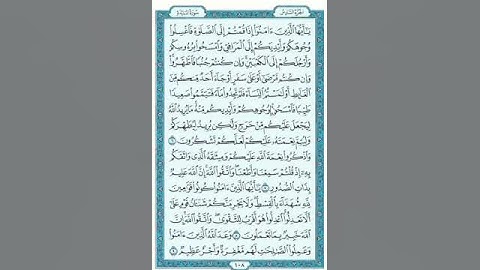 الجزء السادس سورة المائدة
يَٰٓأَيُّهَا ٱلَّذِينَ ءَامَنُوٓا۟ إِذَا قُمْتُمْ إِلَى ٱلصَّلَوٰةِ فَٱغْسِلُوا۟
وُجُوهَكُمْ وَأَيْدِيَكُمْ إِلَى ٱلْمَرَافِقِ وَٱمْسَحُوا۟ بِرُءُوسِكُمْ
وَأَرْجُلَكُمْ إِلَى ٱلْكَعْبَيْنِ ۚ وَإِن كُنتُمْ جُنُبًا فَٱطَّهَّرُوا۟ ۚ
وَإِن كُنتُم مَّرْضَىٰٓ أَوْ عَلَىٰ سَفَرٍ أَوْ جَآءَ أَحَدٌ مِّنكُم مِّنَ
ٱلْغَآئِطِ أَوْ لَٰمَسْتُمُ ٱلنِّسَآءَ فَلَمْ تَجِدُوا۟ مَآءً فَتَيَمَّمُوا۟ صَعِيدًا
طَيِّبًا فَٱمْسَحُوا۟ بِوُجُوهِكُمْ وَأَيْدِيكُم مِّنْهُ ۚ مَا يُرِيدُ ٱللَّهُ
لِيَجْعَلَ عَلَيْكُم مِّنْ حَرَجٍ وَلَٰكِن يُرِيدُ لِيُطَهِّرَكُمْ
وَلِيُتِمَّ نِعْمَتَهُۥ عَلَيْكُمْ لَعَلَّكُمْ تَشْكُرُونَ ٦
وَٱذْكُرُوا۟ نِعْمَةَ ٱللَّهِ عَلَيْكُمْ وَمِيثَٰقَهُ ٱلَّذِى وَاثَقَكُم
بِهِۦٓ إِذْ قُلْتُمْ سَمِعْنَا وَأَطَعْنَا ۖ وَٱتَّقُوا۟ ٱللَّهَ ۚ إِنَّ ٱللَّهَ عَلِيمٌۢ
بِذَاتِ ٱلصُّدُورِ ٧ يَٰٓأَيُّهَا ٱلَّذِينَ ءَامَنُوا۟ كُونُوا۟ قَوَّٰمِينَ
لِلَّهِ شُهَدَآءَ بِٱلْقِسْطِ ۖ وَلَا يَجْرِمَنَّكُمْ شَنَـَٔانُ قَوْمٍ عَلَىٰٓ
أَلَّا تَعْدِلُوا۟ ۚ ٱعْدِلُوا۟ هُوَ أَقْرَبُ لِلتَّقْوَىٰ ۖ وَٱتَّقُوا۟ ٱللَّهَ ۚ إِنَّ
ٱللَّهَ خَبِيرٌۢ بِمَا تَعْمَلُونَ ٨ وَعَدَ ٱللَّهُ ٱلَّذِينَ ءَامَنُوا۟
وَعَمِلُوا۟ ٱلصَّٰلِحَٰتِ ۙ لَهُم مَّغْفِرَةٌ وَأَجْرٌ عَظِيمٌ ٩
١٠٨